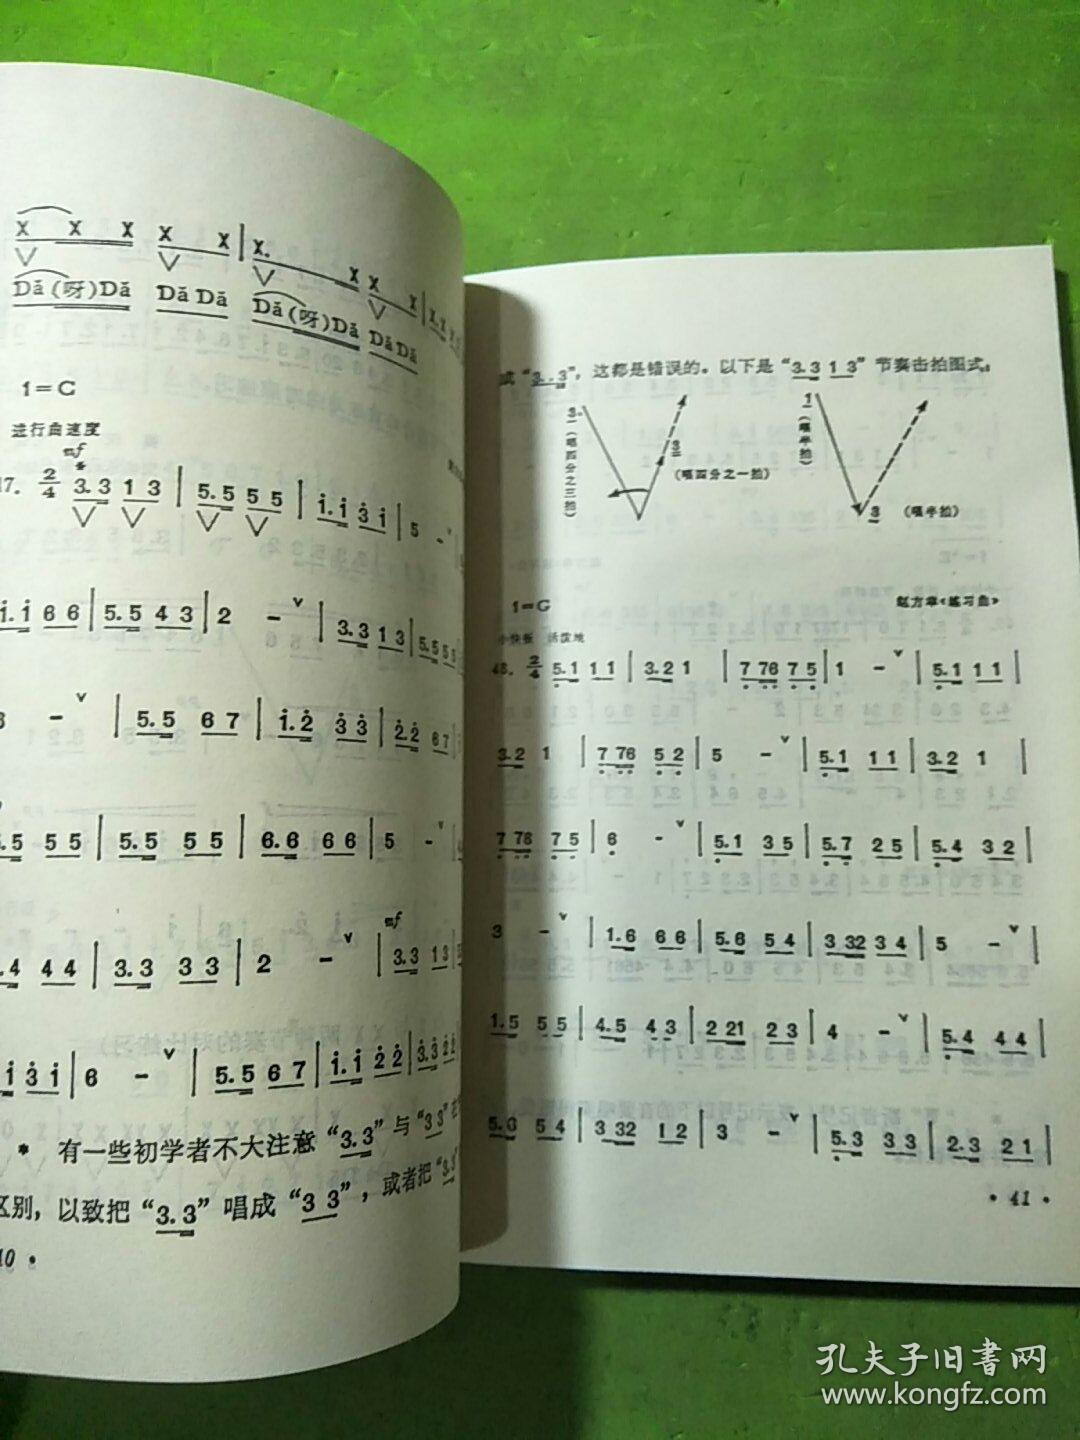 X X X X X | X. X X X | X. X X
Dǎ (呀) Dǎ Dǎ Dǎ Dǎ (呀) Dǎ Dǎ Dǎ
1=G
进行曲速度
mf
*
17. 2/4 3.3 1 3 | 5.5 5 5 | i.i 3 i | 5 - ∨
i.i 6 6 | 5.5 4 3 | 2 - ∨ | 3.3 1 3 | 5.5 5 5
- ∨ | 5.5 6 7 | i.2 3 3 | 2.2 6 7
.5 5 5 | 5.5 5 5 | 6.6 6 6 | 5 - ∨
mf
.4 4 4 | 3.3 3 3 | 2 - ∨ | 3.3 1 3
i 3 i | 6 - ∨ | 5.5 6 7 | i.i 2 2 | 3.3 2 2
* 有一些初学者不大注意“3.3”与“3 3”
区别，以致把“3.3”唱成“3 3”，或者把“3.3”
或“3.3”，这都是错误的。以下是“3.3 1 3”节奏击拍图式：
3.（唱四分之三拍）
3（唱四分之一拍）
1（唱半拍）
3（唱半拍）
1=G
赵方幸《练习曲》
小快板 活泼地
48. 2/4 5.1 1 1 | 3.2 1 | 7 76 7 5 | 1 - ∨ | 5.1 1 1 |
3.2 1 | 7 76 5 2 | 5 - ∨ | 5.1 1 1 | 3.2 1 |
7 76 7 5 | 6 - ∨ | 5.1 3 5 | 5.7 2 5 | 5.4 3 2 |
3 - ∨ | 1.6 6 6 | 5.6 5 4 | 3 32 3 4 | 5 - ∨ |
1.5 5 5 | 4.5 4 3 | 2 21 2 3 | 4 - ∨ | 5.4 4 4 |
5.6 5 4 | 3 32 1 2 | 3 - ∨ | 5.3 3 3 | 2.3 2 1 |
• 41 •
孔夫子旧書网
www.kongfz.com